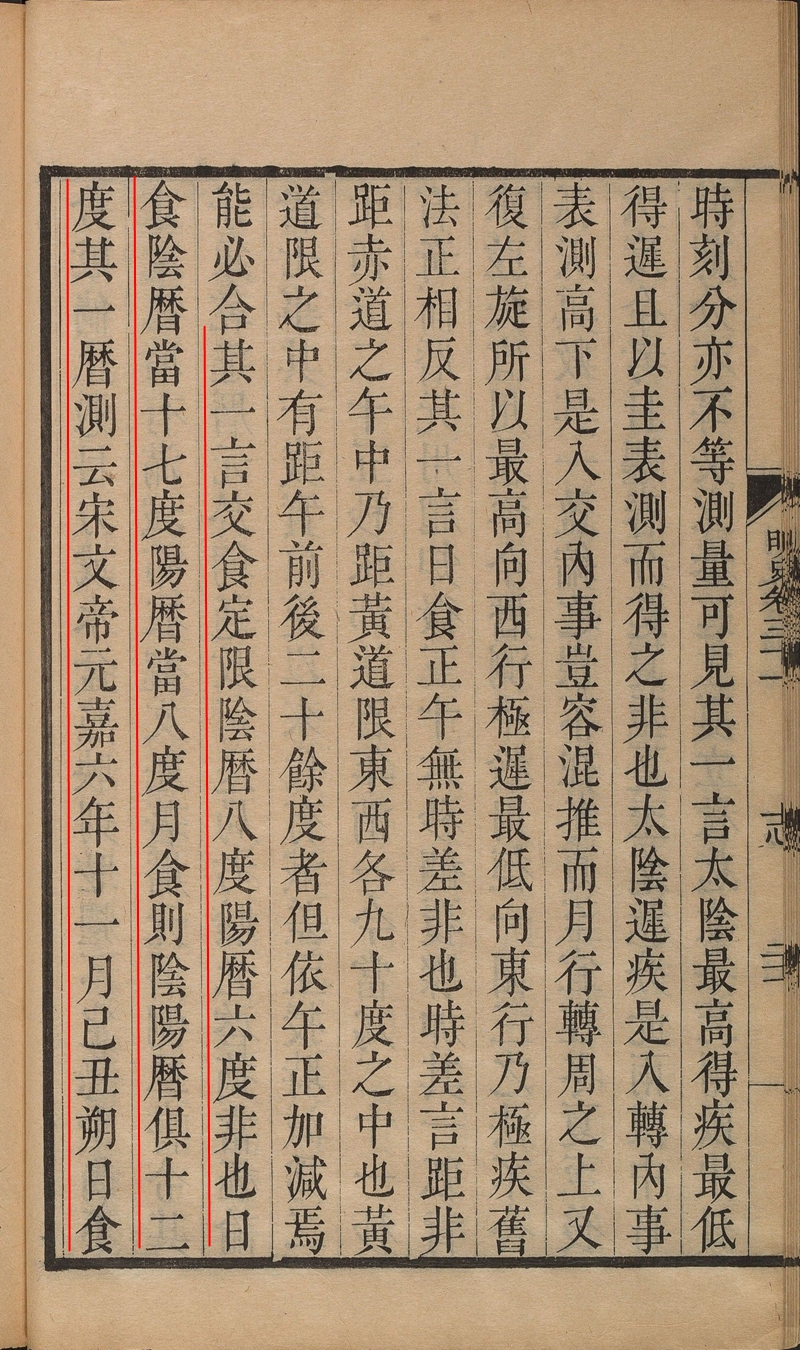 明史卷三十一
志
三
時刻分亦不等測量可見其一言太陰最高得疾最低
得遲且以圭表測而得之非也太陰遲疾是入轉內事
表測高下是入交內事豈容混推而月行轉周之上又
復左旋所以最高向西行極遲最低向東行乃極疾舊
法正相反其一言日食正午無時差非也時差言距非
距赤道之午中乃距黃道限東西各九十度之中也黃
道限之中有距午前後二十餘度者但依午正加減焉
能必合其一言交食定限陰曆八度陽曆六度非也日
食陰曆當十七度陽曆當八度月食則陰陽曆俱十二
度其一曆測云宋文帝元嘉六年十一月己丑朔日食